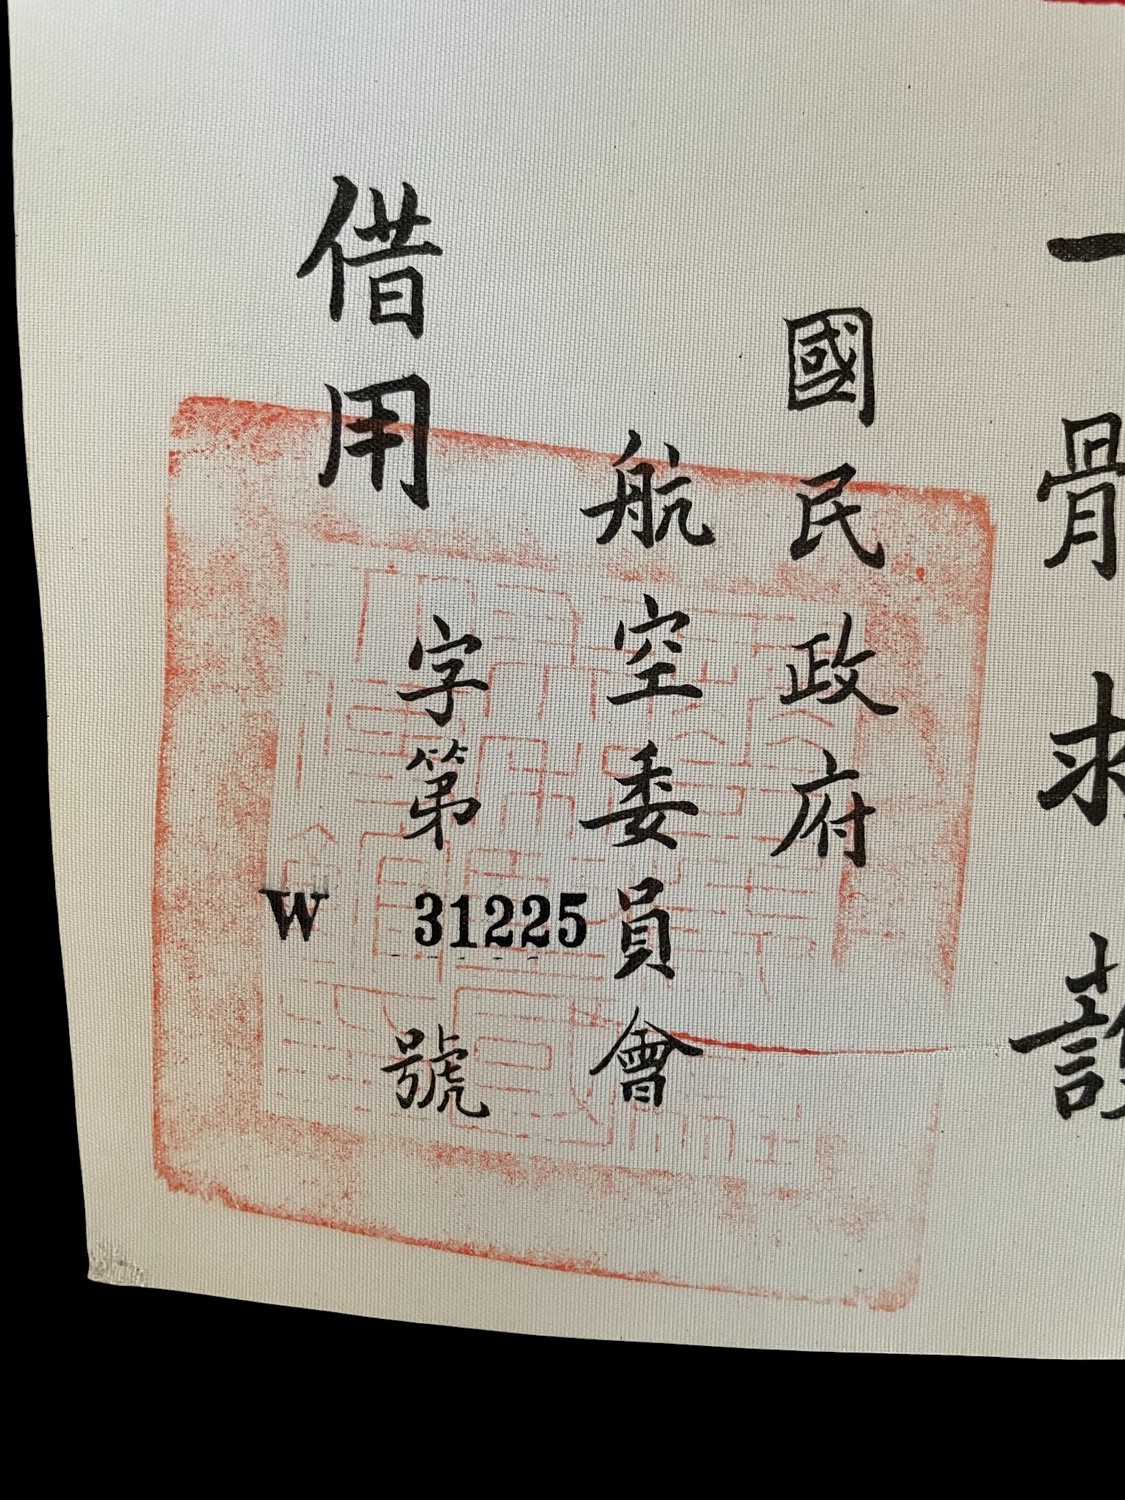 一體救護
國民政府
航空委員會
字第 W 31225 號
借用